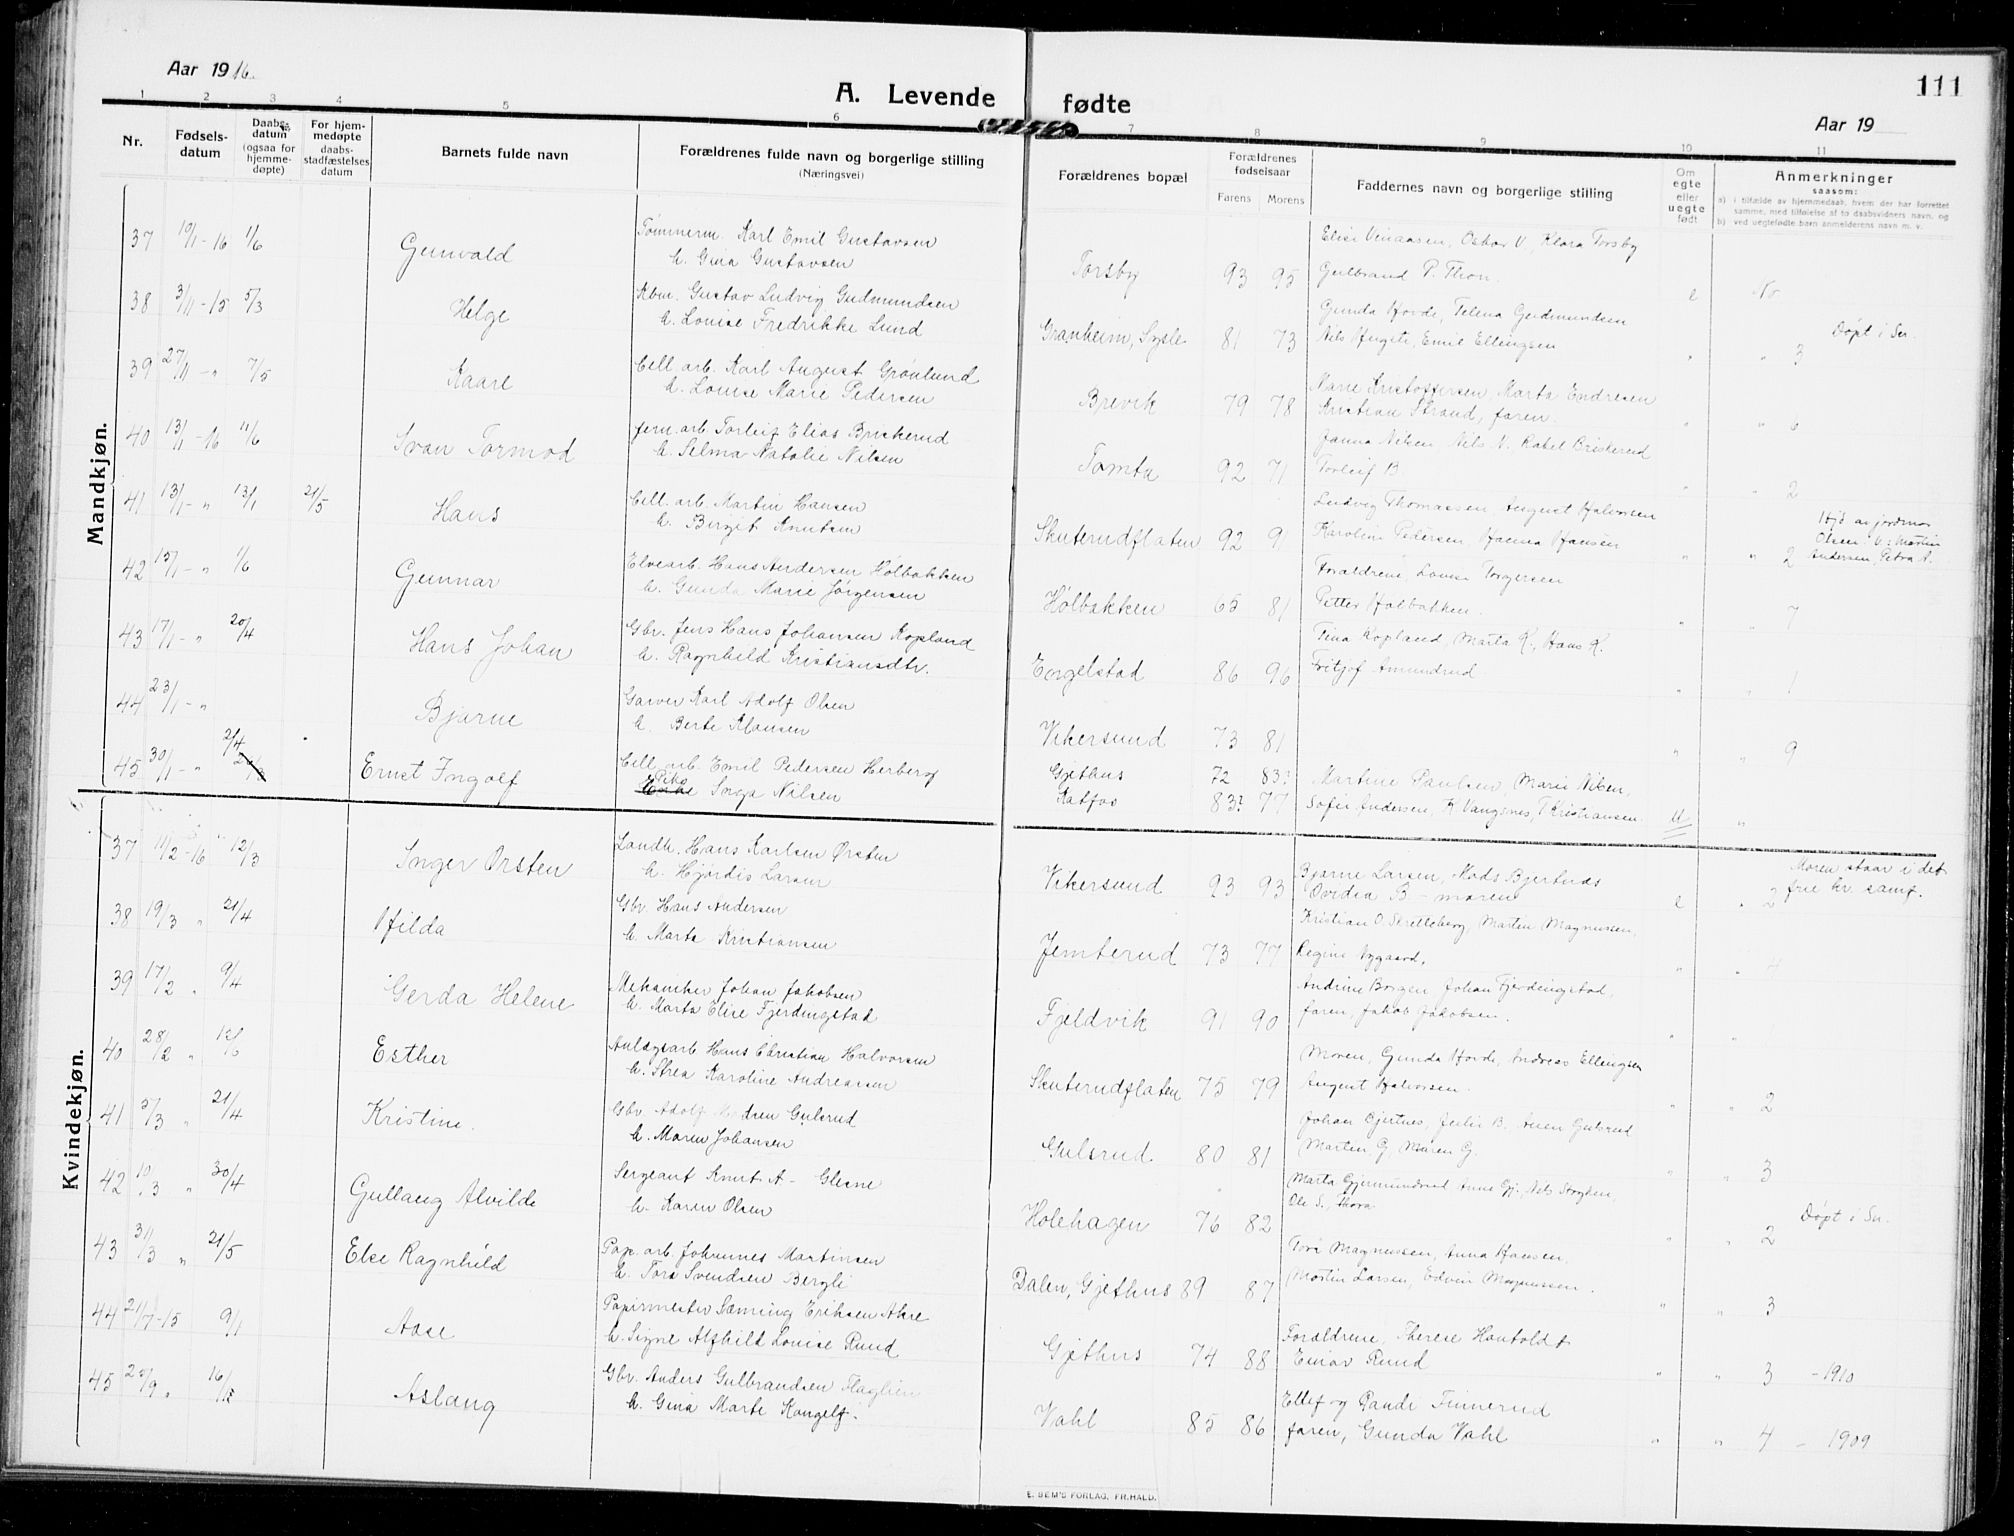 Aar 1916.
A. Levende fødte
111
Aar 19
1 2 3 4 5 6 7 8 9 10 11
Nr.
Fødsels-datum
Daabs-datum (ogsaa for hjemme-døpte)
For hjem-medøpte daabs-stadfæstelses datum
Barnets fulde navn
Forældrenes fulde navn og borgerlige stilling
(Næringsvei)
Forældrenes bopæl
Forældrenes fødselsaar
Farens Morens
Faddernes navn og borgerlige stilling
Om egte eller uegte født
Anmerkninger
saasom:
a) i tilfælde av hjemmedaab, hvem der har forrettet samme, med tilføielse af to daabsvidners navn, og
b) ved uegtefødte barn anmelderens navn m. v.
Mandkjøn.
37 19/1-16 1/6 Gunvald Tømmerm. Karl Emil Gustavsen
h. Gina Gustavsen
Torsby 93 95 Oskar V, Klara Torsby
Gulbrand P. Thon. e No
38 3/11-15 5/3 Helge Kbm. Gustav Ludvig Gudmundsen
h. Louise Fredrikke Lund
Granheim, Sysle 81 73 Gunda Hovde, Telena Gudmundsen
Emil Ellingsen " " 3 Døpt i Sn.
39 27/11-" 7/5 Kaare Cell. arb. Karl August Grønlund
h. Louise Marie Pedersen
Brevik 79 78 Marie Kristoffersen, Marta Endresen
Kristian Strand, faren. " " 6
40 13/1-16 11/6 Svan Tormod Jern. arb. Torleif Elias Briskerud
h. Selma Natalie Nilsen
Tomta 92 71 Janna Nilsen Nils N. Rakel Briskerud
Torleif B. " " 2
41 13/1-" 13/1 21/5 Hans Cell. arb. Martin Hansen
h. Birgit Knutsen
Skuterudflaten 92 91 Ludvig Thomassen, August Halvorsen
Karoline Pedersen, Hanna Hansen " " 2 Hjd av jordmor
Olsen V: Martin
Andersen, Petra A.
42 15/1-" 1/6 Gunnar Elvearb. Hans Andersen Hølbakken
h. Gunda Marie Jørgensen
Hølbakken 65 81 Forældrene, Louise Torgersen
Petter Hølbakken. " " 7
43 17/1-" 20/4 Hans Johan Gbr. Jens Hans Johansen Kopland
h. Ragnhild Kristiansdtr.
Engelstad 86 96 Tina Kopland, Marta K., Hans K.
Fritjof Amundrud. " " 1
44 23/1-" Bjarne Garver Karl Adolf Olsen
h. Berte Klausen
Vikersund 73 81 " " 9
45 30/1-" 2/4 Ernst Ingolf Cell. arb. Emil Pedersen Herberg
Pike Inga Nilsen
Gjethus 72 83? Martine Paulsen, Marie Nilsen,
Katfos 83? 77 Sofie Andersen, K Vangsnes, T Kristiansen. U "
Kvindekjøn.
37 11/2-16 12/3 Inger Ørsten Landh. Hans Karlsen Ørsten
h. Hjørdis Larsen
Vikersund 93 93 Bjarne Larsen, Mads Bjertnæs
Ovidia B - moren e " 2 Moren staar i det
frie kr. samf.
38 19/3 " 21/4 Hilda Gbr. Hans Andersen
h. Marta Kristiansen
Jemterud 73 77 Kristian O. Skretteberg, Martin Magnussen,
Regine Nygaard. " " 4
39 17/2 " 9/4 Gerda Helene Mekaniker Johan Jakobsen
h. Marta Elise Fjerdingstad
Fjeldvik 91 90 Andrine Borgen, Johan Fjerdingstad,
faren, Jakob Jakobsen. " "
40 28/2 " Esther Anlægsarb Hans Christian Halvorsen
h. Karoline Andreassen
Skuterudflaten 75 79 Moren, Gunda Hovde, Andreas Ellingsen
August Halvorsen. " " 2
41 5/3 " 21/4 Kristine. Gbr. Adolf Madsen Gulsrud
h. Maren Johansen
Gulsrud 80 81 Johan Bjertnes, Julie B. Anen Gulsrud
Martin G, Maren G. " " 3
42 10/3 " 30/4 Gullaug Alvilde Sergeant Knut A- Glesne
h. Karen Olsen
Holehagen 76 82 Marta Gjermundrød Anne Gj., Nils Stryken,
Ole S., Thora " " 2 Døpt i Sn.
43 31/3 " 21/5 Else Ragnhild Pap. arb. Johannes Martinsen
h. Tora Svendsen Bergli
Dalen, Gjethus 89 87 Tora Magnussen, Anna Hansen,
Martin Larsen, Edvin Magnussen. " " 3
44 21/7-15 9/1 Aase Papirmester Sæming Eriksen Akre
h. Signe Alfhild Louise Ruud
Gjethus 74 88 Forældrene, Therese Hantoldt
Einar Ruud " " 3 -1910
45 25/9 " 16/1 Aslaug Gbr. Anders Gulbrandsen Flaglien
h. Gina Marte Kongelf.
Vahl 85 86 Ellef og Randi Finnerud
faren, Gunda Vahl " " 4 - 1909
E. SEM'S FORLAG, FR.HALD.